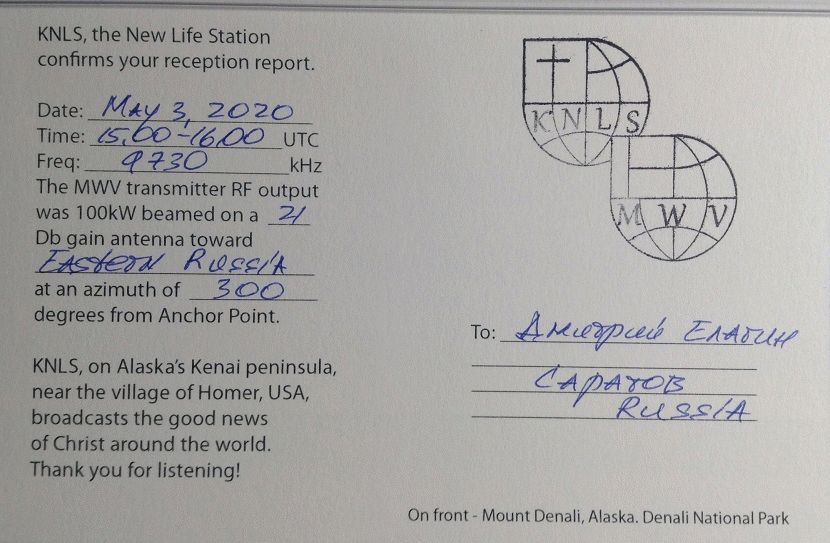 KNLS, the New Life Station
confirms your reception report.
Date: MAY 3, 2020
Time: 15,00-16,00 UTC
Freq: 9730 kHz
The MWV transmitter RF output
was 100kW beamed on a 21
Db gain antenna toward
EASTERN RUSSIA
at an azimuth of 300
degrees from Anchor Point.
KNLS, on Alaska's Kenai peninsula,
near the village of Homer, USA,
broadcasts the good news
of Christ around the world.
Thank you for listening!
KNLS
MWV
To: Дмитрий Елагин
САРАТОВ
RUSSIA
On front - Mount Denali, Alaska. Denali National Park